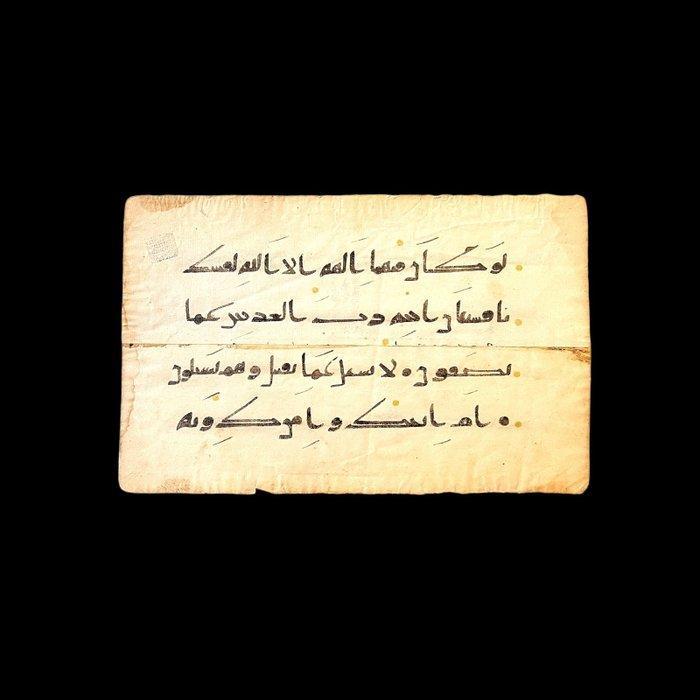 لو كان فيهما الهة الا الله لفسد
تا فسبحان الله رب العرش عما
يصفون ه لا يسل عما يفعل وهم يسلون
ه ام اتخذوا من دونه